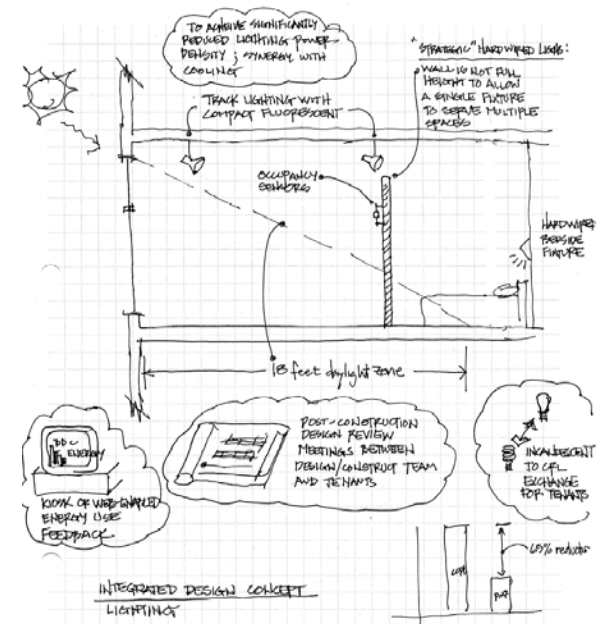 TO ACHIEVE SIGNIFICANTLY
REDUCED LIGHTING POWER
DENSITY; SYNERGY WITH
COOLING
"STRATEGIC" HARDWIRED LIGHTS:
WALL IS NOT FULL
HEIGHT TO ALLOW
A SINGLE FIXTURE
TO SERVE MULTIPLE
SPACES
TRACK LIGHTING WITH
COMPACT FLUORESCENT
OCCUPANCY
SENSORS
HARDWIRED
BEDSIDE
FIXTURE
18 feet daylight zone
ENERGY
KIOSK OF WEB-ENABLED
ENERGY USE
FEEDBACK
POST-CONSTRUCTION
DESIGN REVIEW
MEETINGS BETWEEN
DESIGN/CONSTRUCT TEAM
AND TENANTS
INCANDESCENT
TO CFL
EXCHANGE
FOR TENANTS
65% reduction
INTEGRATED DESIGN CONCEPT
LIGHTING